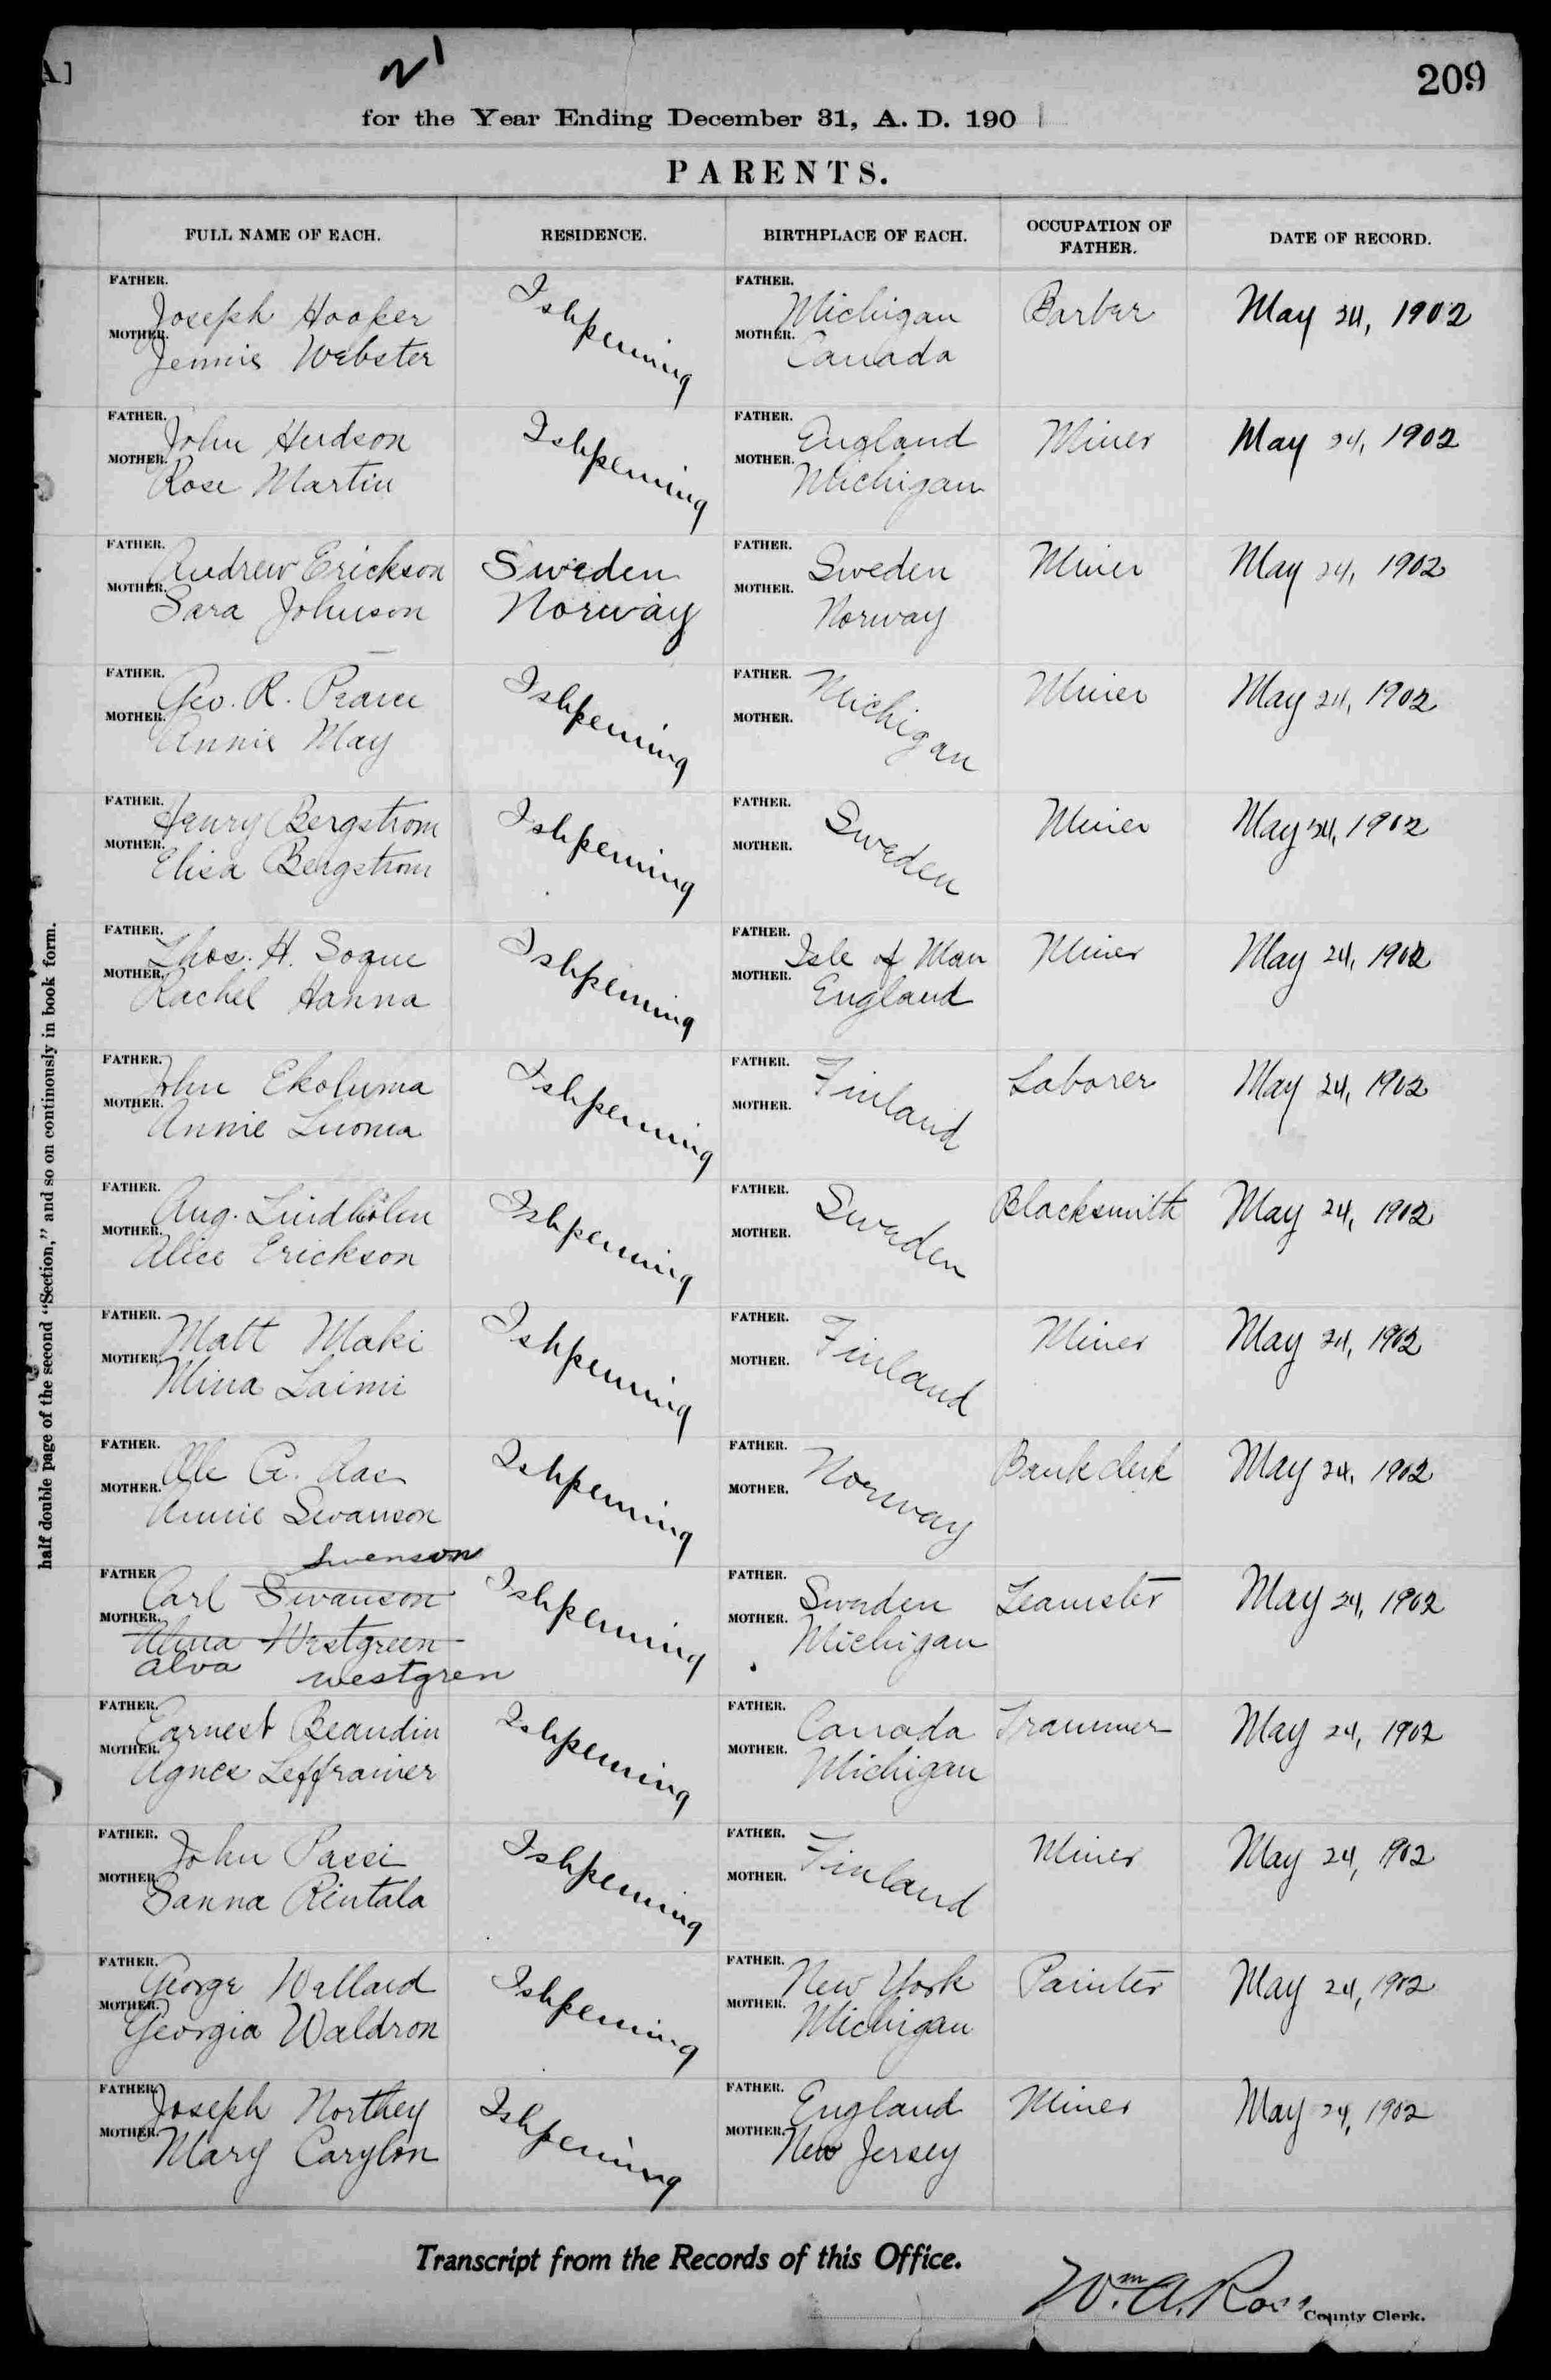 A]
209
for the Year Ending December 31, A. D. 190
PARENTS.
FULL NAME OF EACH. RESIDENCE. BIRTHPLACE OF EACH. OCCUPATION OF FATHER. DATE OF RECORD.
FATHER. Joseph Hooker Ishpeming FATHER. Michigan Barber May 24, 1902
MOTHER. Jennie Webster MOTHER. Canada
FATHER. John Hudson Ishpeming FATHER. England Miner May 24, 1902
MOTHER. Rose Martin MOTHER. Michigan
FATHER. Andrew Erickson Sweden FATHER. Sweden Miner May 24, 1902
MOTHER. Sara Johnson Norway MOTHER. Norway
FATHER. Geo. R. Pearce Ishpeming FATHER. Michigan Miner May 24, 1902
MOTHER. Annie May MOTHER.
FATHER. Henry Bergstrom Ishpeming FATHER. Sweden Miner May 24, 1902
MOTHER. Elisa Bergstrom MOTHER.
FATHER. Thos. H. Ishpeming FATHER. Isle of Man Miner May 24, 1902
MOTHER. Rachel Hanna MOTHER. England
FATHER. John Ekoluma Ishpeming FATHER. Finland Laborer May 24, 1902
MOTHER. Annie Luoma MOTHER.
FATHER. Aug. Lindholm Ishpeming FATHER. Sweden Blacksmith May 24, 1902
MOTHER. Alice Erickson MOTHER.
FATHER. Matt Maki Ishpeming FATHER. Finland Miner May 24, 1902
MOTHER. Mina Laimi MOTHER.
FATHER. Ole G. Aas Ishpeming FATHER. Norway Bank clerk May 24, 1902
MOTHER. Annie Swanson MOTHER.
Swenson
FATHER Carl Swanson Ishpeming FATHER. Sweden Teamster May 24, 1902
MOTHER. Alma Westgreen MOTHER. Michigan
Alva Westgren
FATHER. Earnest Beaudin Ishpeming FATHER. Canada Trammer May 24, 1902
MOTHER. Agnes Leffrainer MOTHER. Michigan
FATHER. John Passi Ishpeming FATHER. Finland Miner May 24, 1902
MOTHER. Sanna Rintala MOTHER.
FATHER. George Willard Ishpeming FATHER. New York Painter May 24, 1902
MOTHER. Georgia Waldron MOTHER. Michigan
FATHER. Joseph Northey Ishpeming FATHER. England Miner May 24, 1902
MOTHER. Mary Carylon MOTHER. New Jersey
half double page of the second "Section," and so on continously in book form.
Transcript from the Records of this Office.
Wm. A. Ross
County Clerk.